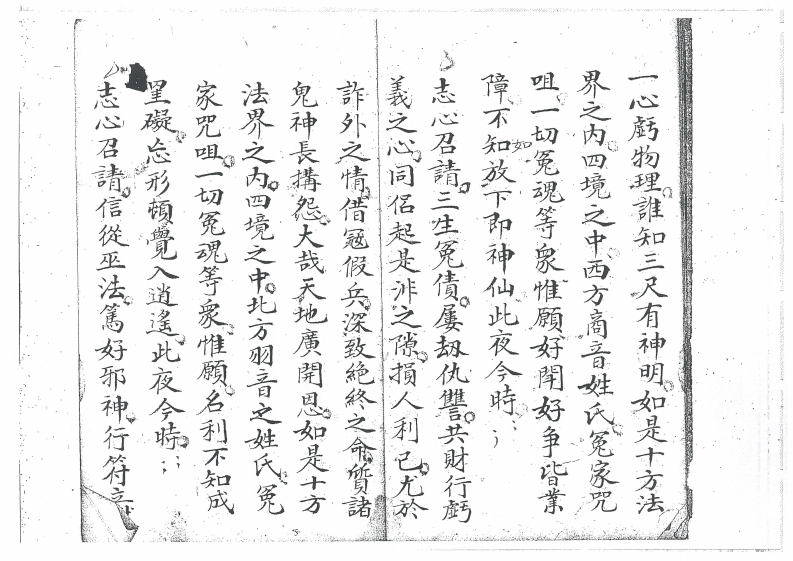 一心虧物理誰知三尺有神明如是十方法
界之內四境之中西方商音姓氏冤家咒
咀一切冤魂等眾惟願好鬪好爭皆業
障不知如放下即神仙此夜今時；；
志心召請三生冤債屢劫仇讐共財行虧
義之心同侶起是非之隙損人利己尤於
詐外之情借寇假兵深致絶終之命質諸
鬼神長搆怨大哉天地廣開恩如是十方
法界之內四境之中北方羽音之姓氏冤
家咒咀一切冤魂等眾惟願名利不知成
罣礙忘形頓覺入逍遙此夜今時；；
志心召請信從巫法篤好邪神行符